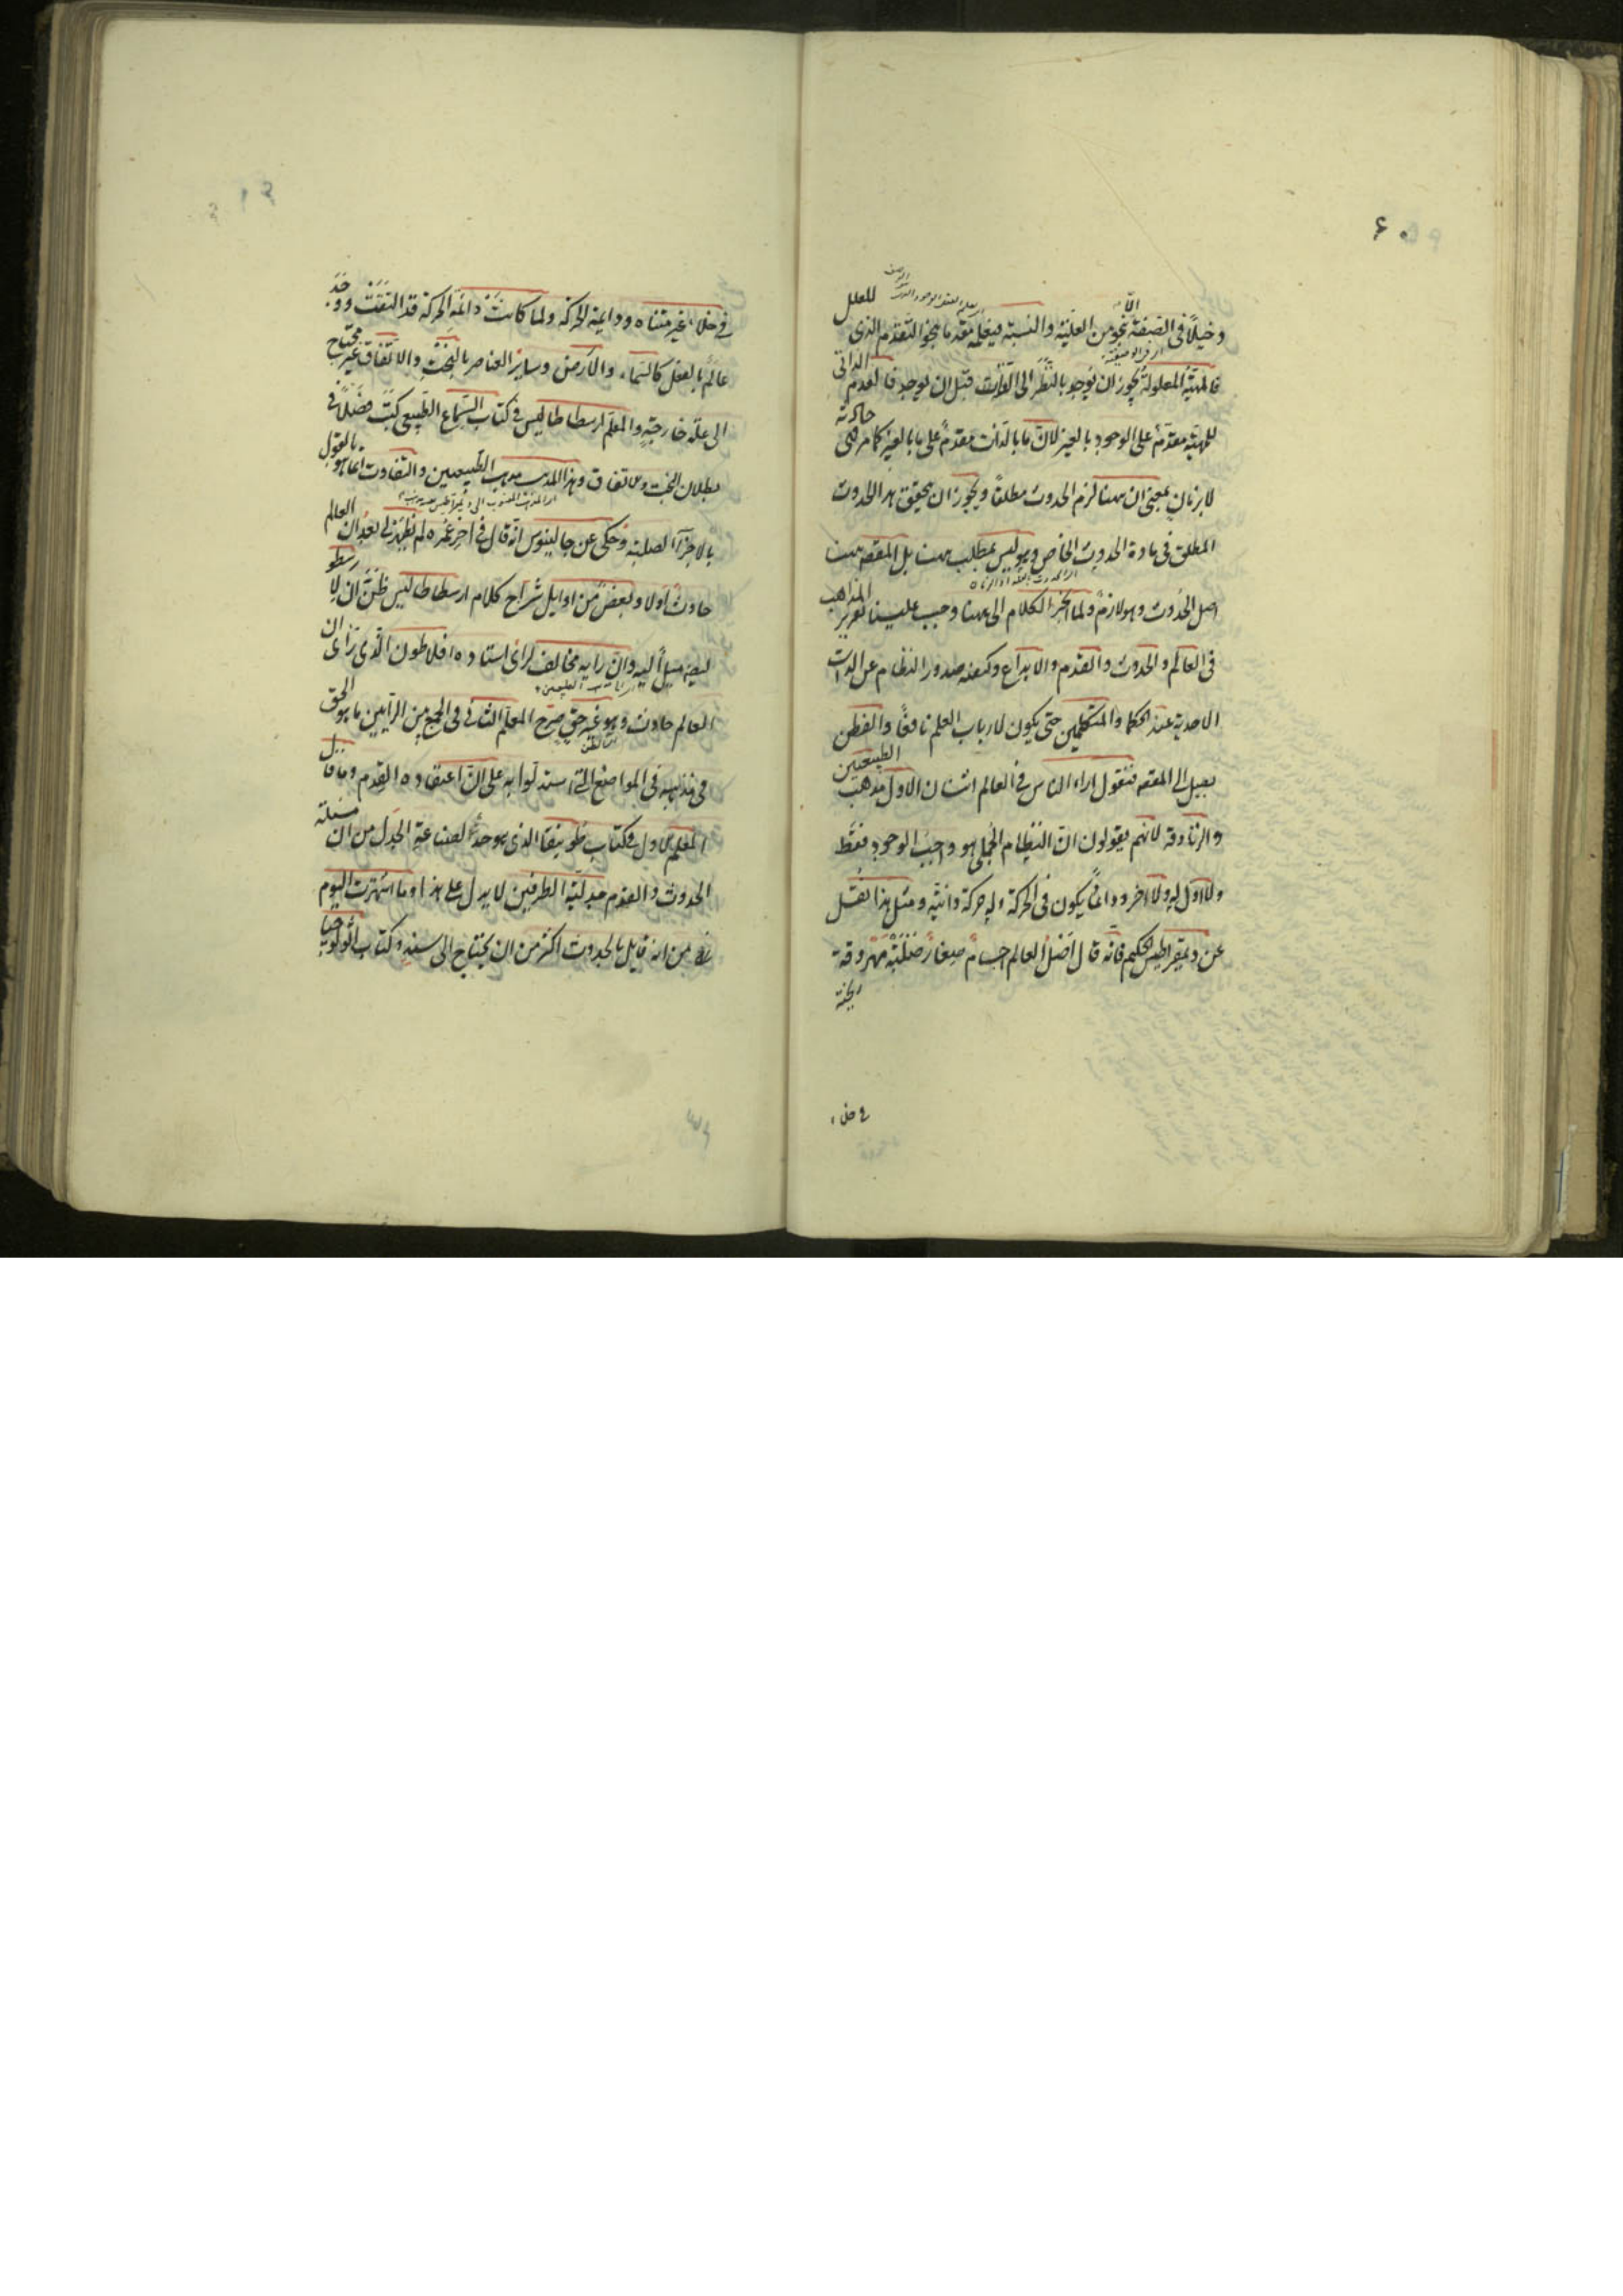 دخيلاً في الصفة بنحو من العلية والنسبة فيعلم تقدما بنحو التقدم الذي للعلل
فالمهية المعلولة يجوز ان يوجد بالنظر الى الذات قبل ان يوجد فالعدم الذاتي
للمهية مقدم على الوجود بالغير لان ما بالذات مقدم على ما بالغير كما مر فهي حادثة
لا بزمان بمعنى ان ههنا لزم الحدوث مطلقاً ويجوز ان يحقق هذا الحدوث
المطلق في مادة الحدوث الخاص وهو ليس بمطلب ههنا بل المقصد ههنا
اصل الحدوث وهو لازم ولما انجر الكلام الى ههنا وجب علينا تقرير المذاهب
في العالم والحدوث والقدم والابداع وكيفية صدور النظام عن الذات
الاحدية عند الحكما والمتكلمين حتى يكون لارباب العلم نافعاً والفطن
يصل الى المقصد فنقول اراء الناس في العالم اثنان الاول مذهب الطبيعيين
والزنادقة لانهم يقولون ان النظام الجملي هو واجب الوجود فقط
ولا اول له ولا اخر ودائماً يكون في الحركة وله حركة دائمة ومثل هذا نقل
عن ديمقراطيس الحكيم فانه قال اصل العالم اجسام صغار صلبة
في خلاء
في خلاء غير متناه ودائمة الحركة ولما كانت دائمة الحركة قد اتفقت ووجد
عالم بالفعل كالسماء والارض وساير العناصر بالبخت والاتفاق غير محتاج
الى علة خارجية والمعلم ارسطاطاليس في كتاب السماع الطبيعي كتب فصلاً في
بطلان البخت والاتفاق وهذا المذهب مذهب الطبيعيين والتفاوت انما هو بالقول
بالاجزاء الصلبة وحكى عن جالينوس انه قال في اخر عمره لم يظهر لي بعد ان العالم
حادث اولا وبعض من اوايل شراح كلام ارسطاطاليس ظن ان لارسطو
ايضا ميلاً اليه وان رأيه مخالف لرأى استاده افلاطون الذي رأى ان
العالم حادث وهو غير حق صرح المعلم الثاني في الجمع بين الرأيين ما هو الحق
في مذهبه في المواضع التي استدلوا به على ان اعتقاده القدم وما قال
المعلم الاول في كتاب طوبيقا الذي هو لصناعة الجدل من ان مسئلة
الحدوث والقدم جدلية الطرفين لا يدل على هذا وما اشتهرت اليوم
من انه قايل بالحدوث اكثر من ان يحتاج الى سند وكتاب اثولوجيا